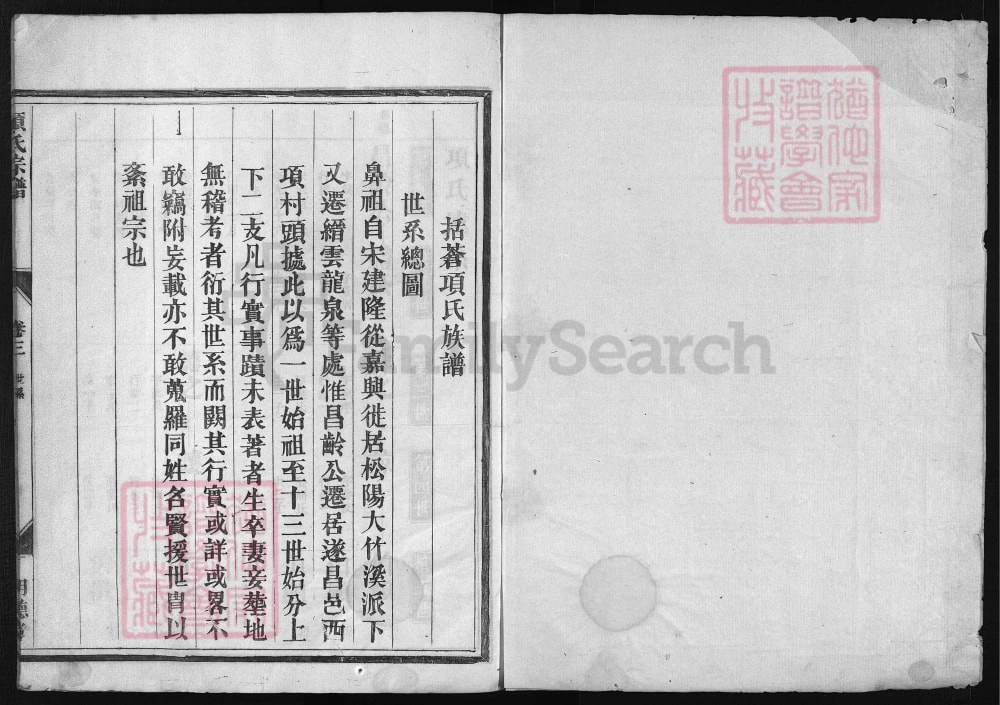 括蒼項氏族譜
世系總圖
鼻祖自宋建隆從嘉興徙居松陽大竹溪派下
又遷縉雲龍泉等處惟昌齡公遷居遂昌邑西
項村頭據此以爲一世始祖至十三世始分上
下二支凡行實事蹟未表著者生卒妻妾塋地
無稽考者衍其世系而闕其行實或詳或畧不
敢竊附妄載亦不敢蒐羅同姓名賢援世冑以
紊祖宗也
項氏宗譜
卷三 世系
明德堂
FamilySearch